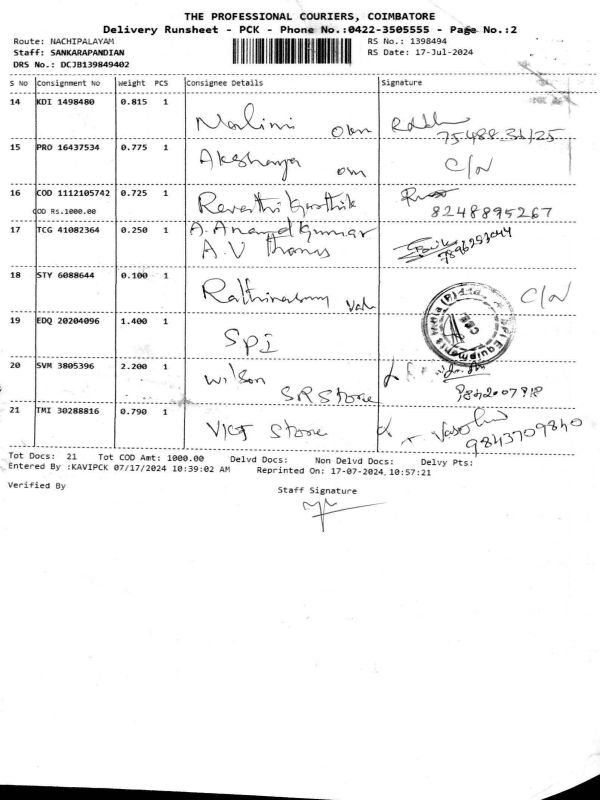 THE PROFESSIONAL COURIERS, COIMBATORE
Delivery Runsheet - PCK - Phone No.:0422-3505555 - Page No.:2
Route: NACHIPALAYAM RS No.: 1398494
Staff: SANKARAPANDIAN RS Date: 17-Jul-2024
DRS No.: DCJB139849402
S No Consignment No Weight PCS Consignee Details Signature
14 KDI 1498480 0.815 1
Malini
15 PRO 16437534 0.775 1
Akshaya C/N
16 COD 1112105742 0.725 1 Revathi Karthik
COD Rs.1000.00 8248895267
17 TCG 41082364 0.250 1 A. Anand Kumar
A.V
18 STY 6088644 0.100 1
C/N
19 EDQ 20204096 1.400 1
SPI
20 SVM 3805396 2.200 1
Wilson
SR Store
21 TMI 30288816 0.790 1
Store 9843709840
Tot Docs: 21 Tot COD Amt: 1000.00 Delvd Docs: Non Delvd Docs: Delvy Pts:
Entered By :KAVIPCK 07/17/2024 10:39:02 AM Reprinted On: 17-07-2024,10:57:21
Verified By
Staff Signature